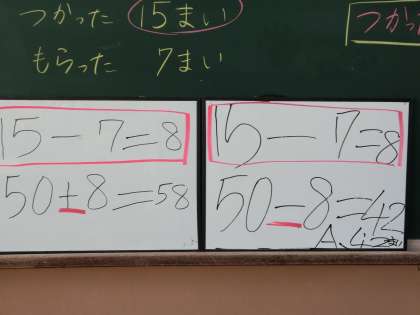 つかった 15まい
もらった 7まい
つかっ
15-7=8
50+8=58
15-7=8
50-8=42
A.42まい